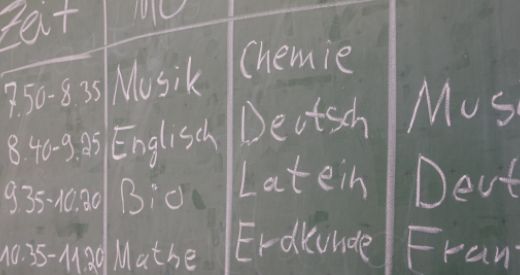 Zeit MO
7.50-8.35 Musik Chemie Mus
8.40-9.25 Englisch Deutsch Deut
9.35-10.20 Bio Latein Fran
10.35-11.20 Mathe Erdkunde